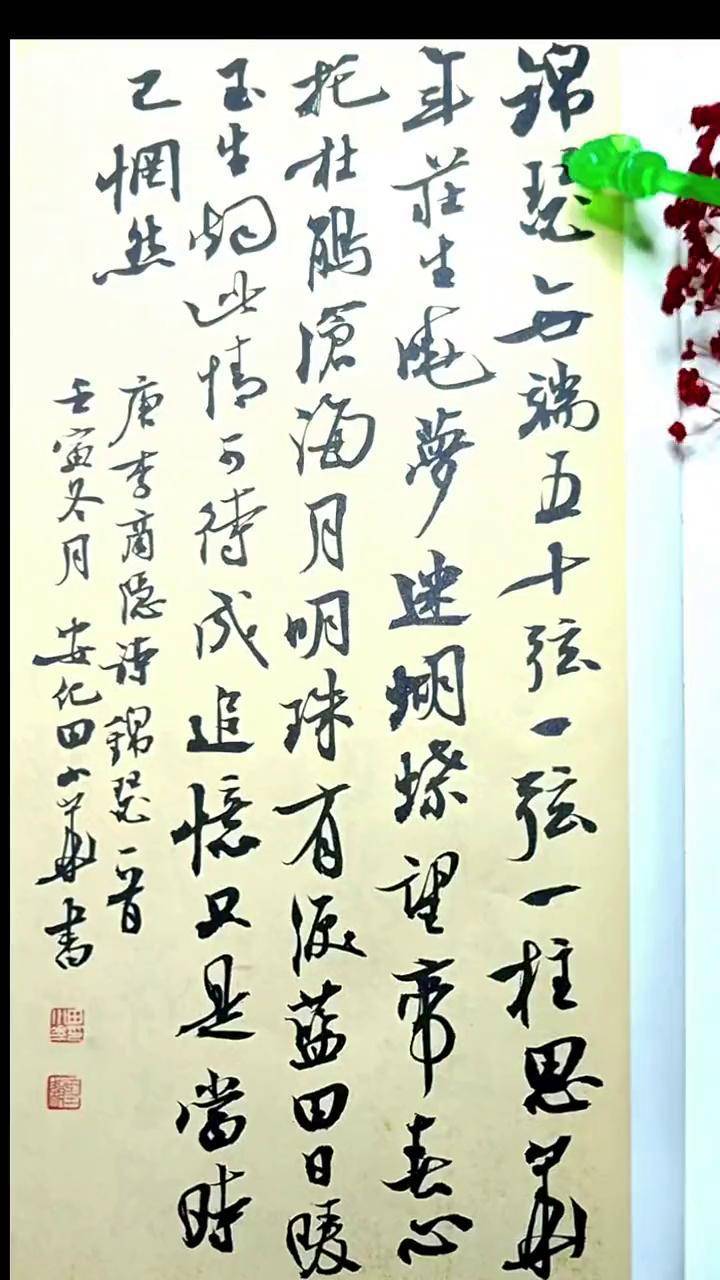 錦瑟無端五十弦一弦一柱思華
年莊生曉夢迷蝴蝶望帝春心
托杜鵑滄海月明珠有淚藍田日暖
玉生烟此情可待成追憶只是當時
已惘然
唐李商隐诗錦瑟一首
壬寅冬月安化田小華書